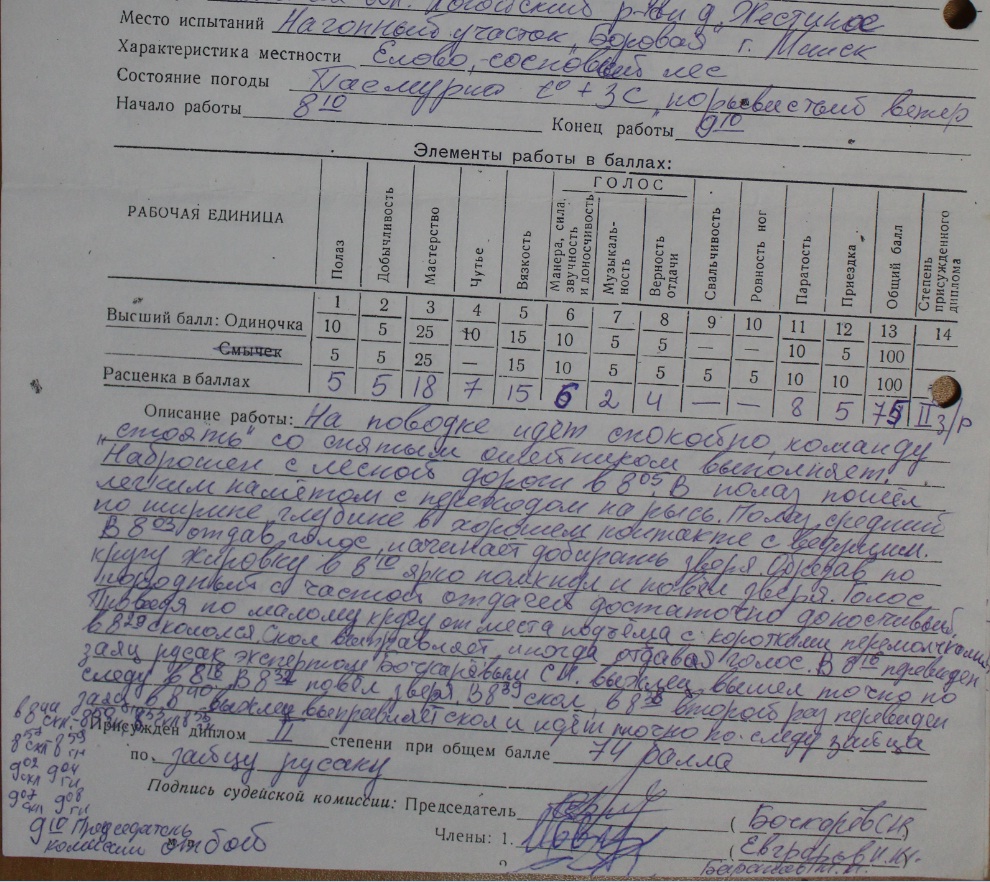 обл. Логойский р-н д. Жестиное
Место испытаний Нагонный участок "Боровая" г. Минск
Характеристика местности Елово-сосновый лес
Состояние погоды Пасмурно t° +3С, порывистый ветер
Начало работы 8 10 Конец работы 9 10
Элементы работы в баллах:
РАБОЧАЯ ЕДИНИЦА Полаз Добычливость Мастерство Чутье Вязкость ГОЛОС Манера, сила, звучность и доносчивость Музыкальность Верность отдачи Свальчивость Ровность ног Паратость Приездка Общий балл Степень присужденного диплома
1 2 3 4 5 6 7 8 9 10 11 12 13 14
Высший балл: Одиночка 10 5 25 10 15 10 5 5 — — 10 5 100
Смычек 5 5 25 — 15 10 5 5 5 5 10 10 100
Расценка в баллах 5 5 18 7 15 6 2 4 — — 8 5 75 II з/р
Описание работы: На поводке идет спокойно, команду
"стоять" со снятым ошейником выполняет.
Наброшен с лесной дороги в 8 05. В полаз пошёл
легким намётом с переходом на рысь. Полаз средний
по ширине глубине в хорошем контакте с ведущим.
В 8 03 отдав голос, начинает добирать зверя. Обрезав по
кругу жировку в 8 10 ярко помкнул и повёл зверя. Голос
породный с частой отдачей достаточно доносчивый.
Проведя по малому кругу от места подъёма с короткими перемолчками,
в 8 29 скололся. Скол выправляет, иногда отдавая голос. В 8 10 перевиден
заяц русак экспертом Боскарёвым С.Н. выжлец вышел точно по
следу в 8 18. В 8 32 повёл зверя. В 8 39 скол, в 8 38 второй раз перевиден
заяц в 8 40 выжлец выправляет скол и идёт точно по следу зайца
Присужден диплом II степени при общем балле 74 балла
по зайцу русаку
Подпись судейской комиссии: Председатель (Боскарёв С.Н.
Члены: 1. (Евграфов
2
9 10 Председатель
комиссии отбой